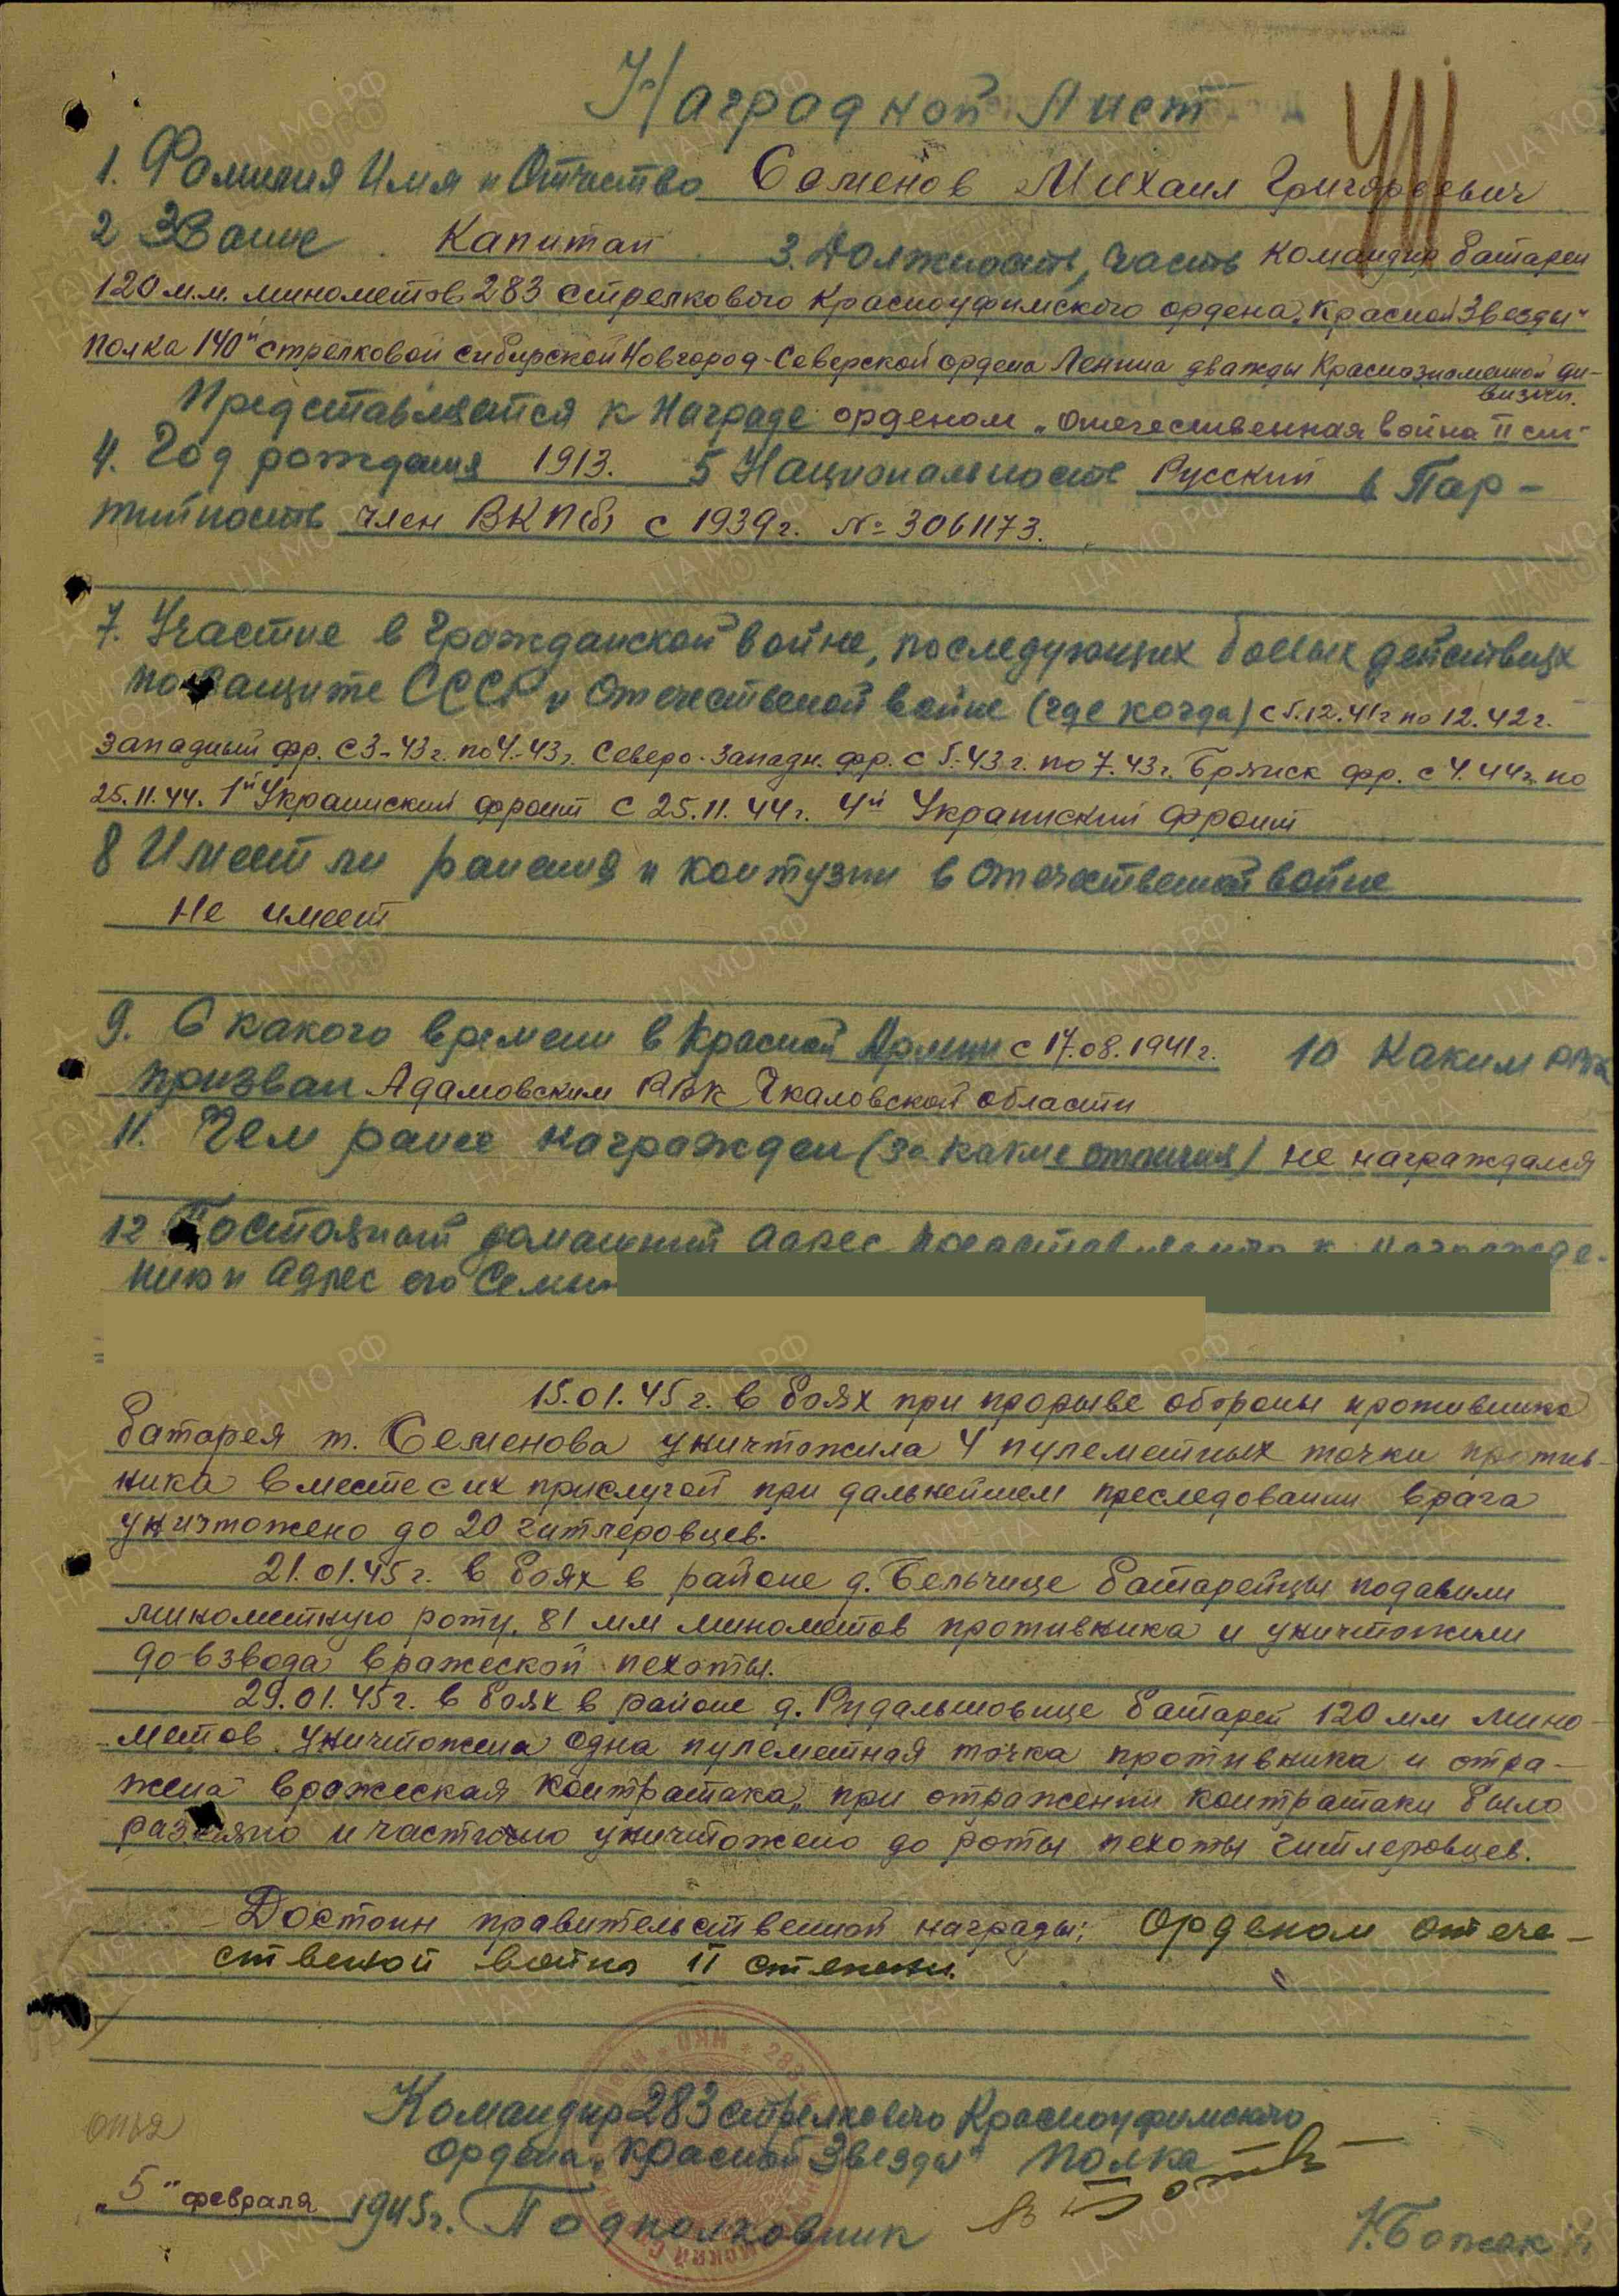 Наградной Лист
1. Фамилия Имя и Отчество Семенов Михаил Григорьевич
2 Звание Капитан 3. Должность, часть Командир батареи
120 м.м. минометов 283 стрелкового Красноуфимского ордена „Красной Звезды“
полка 140й стрелковой сибирской Новгород-Северской ордена Ленина дважды Краснознаменной ди-
визии.
Представляется к Награде орденом „Отечественная война II ст“
4. Год рождения 1913. 5 Национальность Русский 6 Пар-
тийность член ВКП(б) с 1939г. № 3061173.
7. Участие в Гражданской войне, последующих боевых действиях
по защите СССР и Отечественой войне (где когда) с 5.12.41г по 12.42г.
Западный фр. с 3-43г. по 4.-43г. Северо-Западн. фр. с 5.-43г. по 7.43г. Брянск фр. с 4.44г. по
25.11.44. 1й Украинский фронт с 25.11.44г. 4й Украинский фронт
8 Имеет ли ранения и контузии в Отечественой войне
Не имеет
9. С какого времени в Красной Армии с 17.08.1941г. 10 Каким РВК
призван Адамовским РВК Чкаловской области
11. Чем ранее награжден (за какие отличия) не награждался
12 Постоянный домашний адрес представляемого к награжде-
нию и адрес его Семьи
15.01.45г. в боях при прорыве обороны противника
батарея т. Семенова уничтожила 4 пулеметных точки против-
ника вместе с их прислугой при дальнейшем преследовании врага
уничтожено до 20 гитлеровцев.
21.01.45г. в боях в районе д. Бельчице батарейцы подавили
минометную роту, 81 мм минометов противника и уничтожили
до взвода вражеской пехоты.
29.01.45г. в боях в районе д. Рудальтовице батареей 120 мм мино-
метов уничтожена одна пулеметная точка противника и отра-
жена вражеская контратака, при отражении контратаки было
разсеяно и частично уничтожено до роты пехоты гитлеровцев.
Достоин правительственной награды: Орденом отече-
ственой война II степени.
Командир 283 стрелкового Красноуфимского
ордена „Красной Звезды“ полка
„5“ февраля 1945г. Подполковник